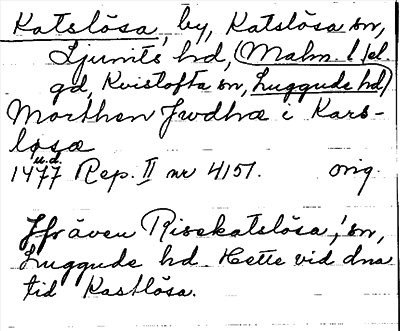 Katslösa, by, Katslösa sn,
Ljunits hd, (Malm. l.) el.
gd, Kvistofta sn, Luggude hd)
Morthen Jwdhæ i Kars-
løsæ
u.d.
1477 Rep. II nr 4151. orig.
Jfr även Risekatslösa, sn,
Luggude hd. Hette vid dna
tid Kastlösa.